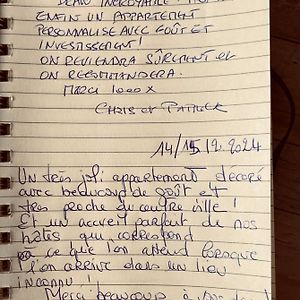 BEAU INCROYABLE !
ENFIN UN APPARTEMENT
PERSONNALISÉ AVEC GOÛT ET
INVESTISSEMENT !
ON REVIENDRA SÛREMENT ET
ON RECOMMANDERA.
MERCI 1000 X
CHRIS ET PATRICK
14/15.12.2024
Un très joli appartement décoré
avec beaucoup de goût et
très proche du centre ville !
Et un accueil parfait de nos
hôtes qui correspond
à ce que l'on attend lorsque
l'on arrive dans un lieu
inconnu !
Merci beaucoup à